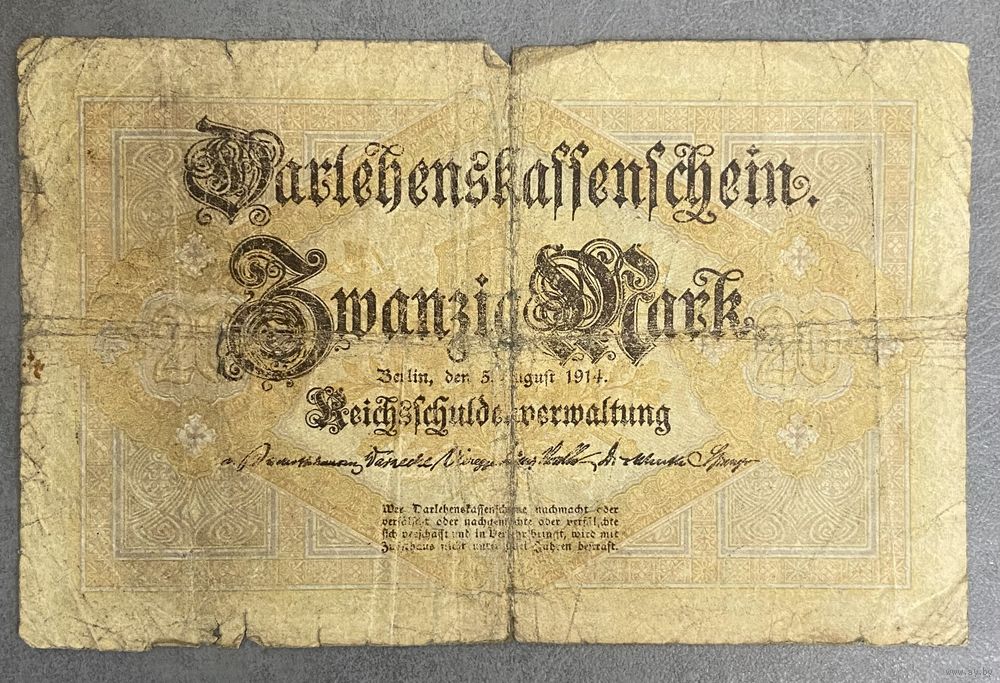 Darlehenskassenschein.
Zwanzig Mark.
20 20
Berlin, den 5. August 1914.
Reichsschuldenverwaltung
Wer Darlehenskassenscheine nachmacht oder
verfälscht oder nachgemachte oder verfälschte
sich verschafft und in Verkehr bringt, wird mit
Zuchthaus nicht unter zwei Jahren bestraft.
www.ay.by